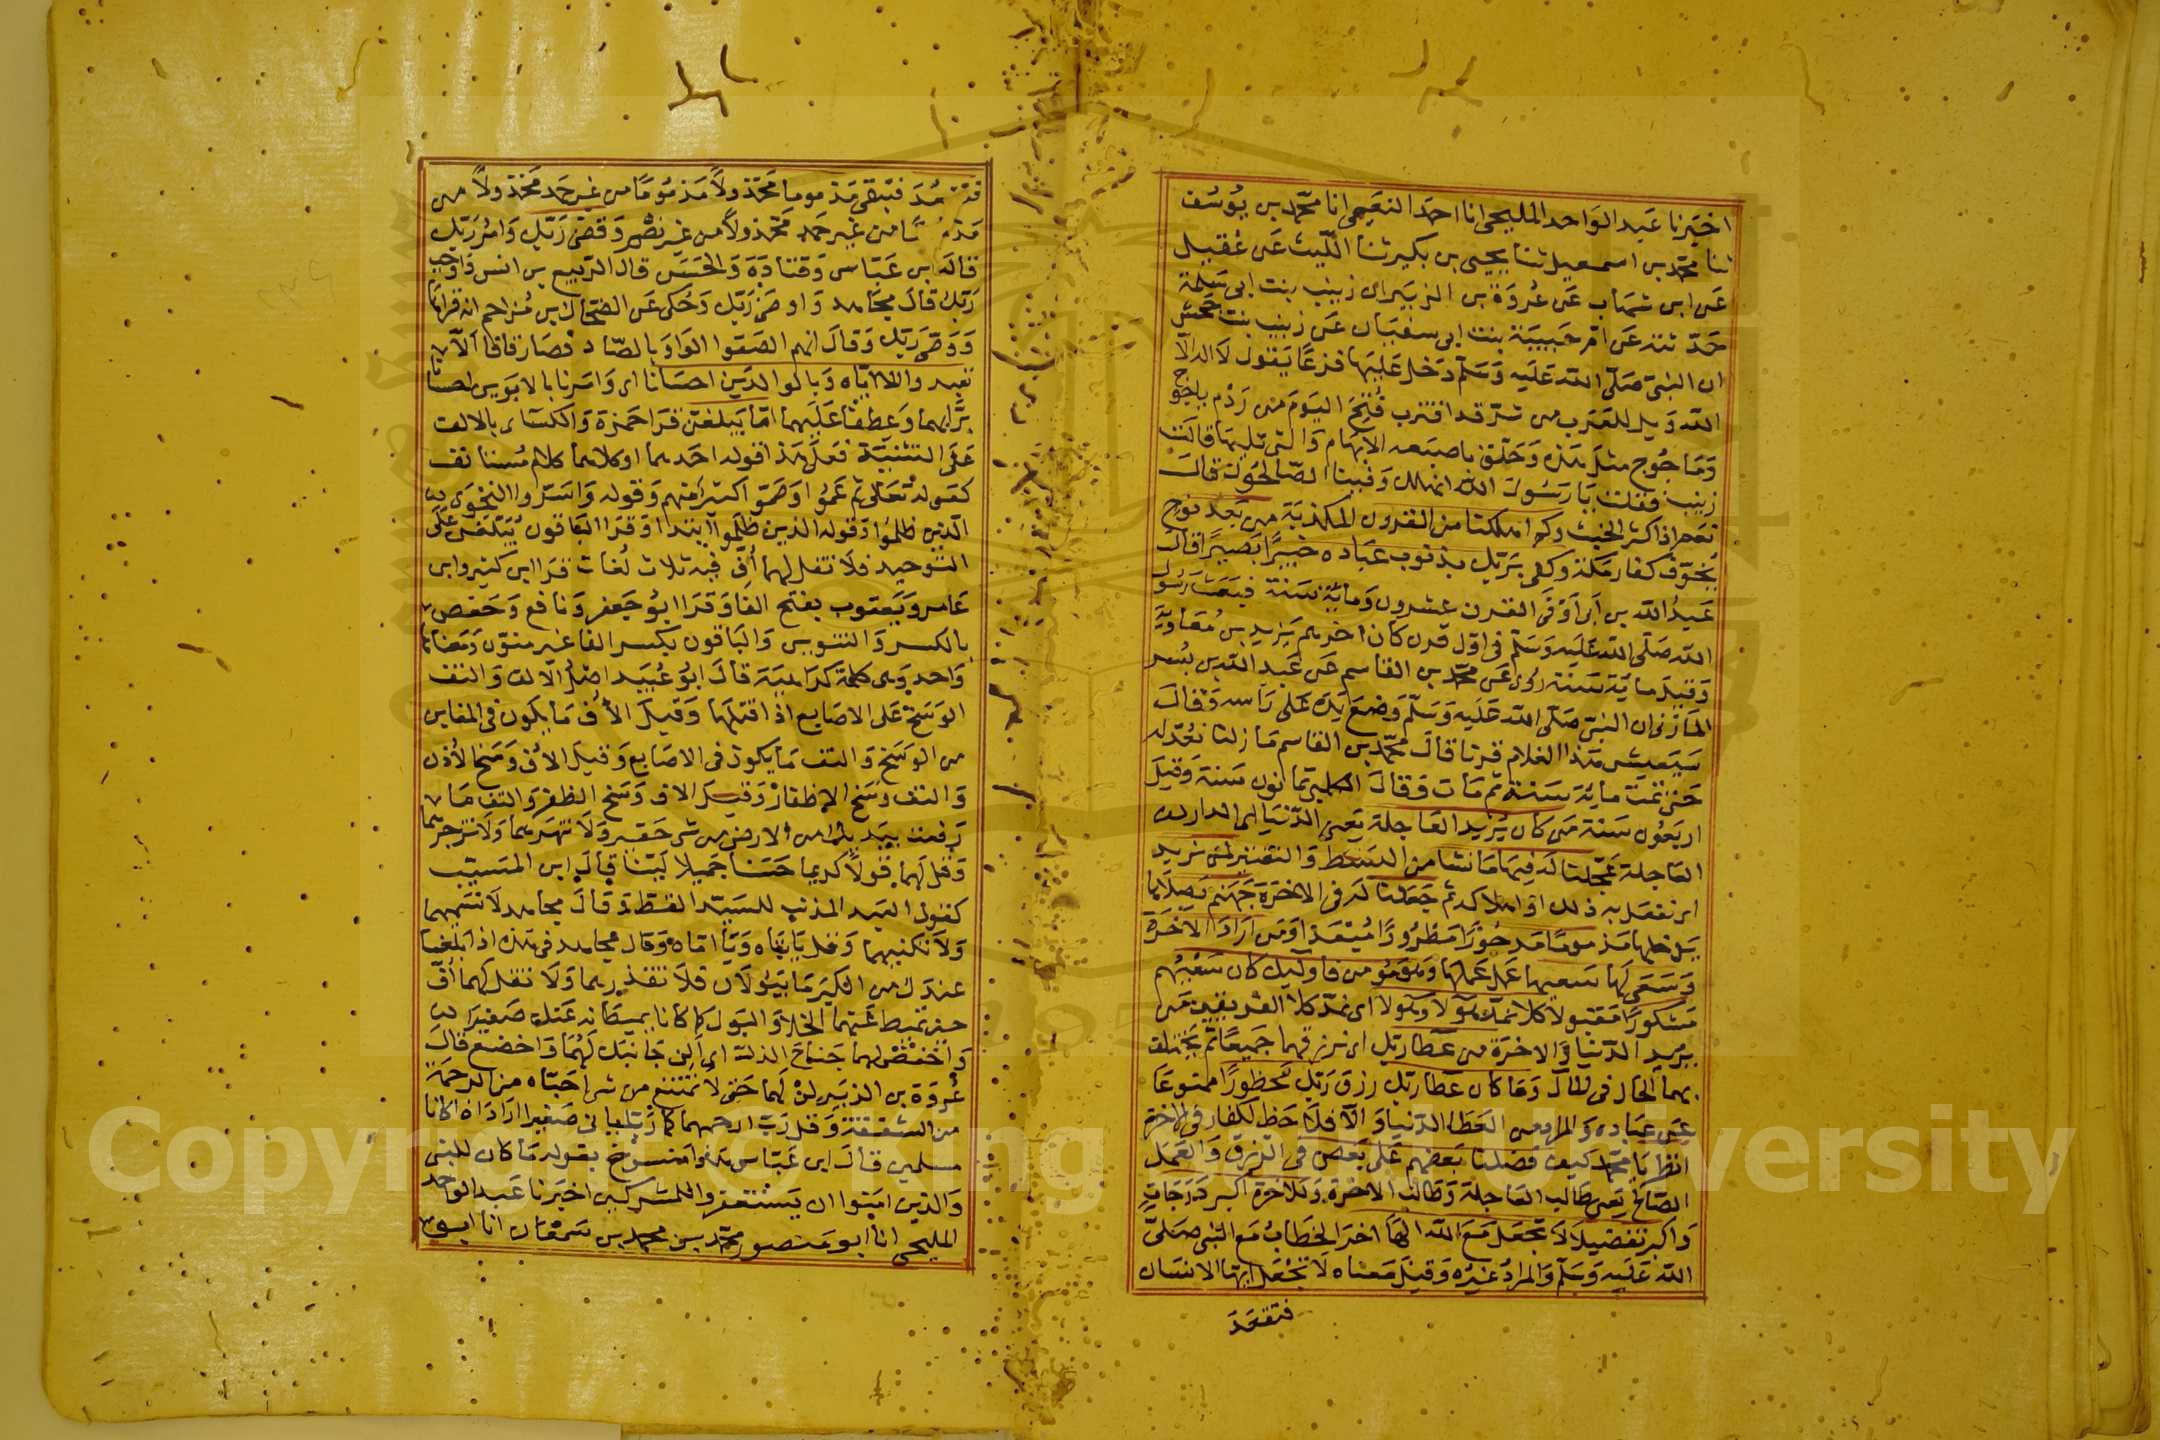 اخبرنا عبد الواحد المليحي انا احمد النعيمي انا محمد بن يوسف
ثنا محمد بن اسمعيل ثنا يحيى بن بكير ثنا الليث عن عقيل
عن ابن شهاب عن عروة بن الزبير ان زينب بنت ابى سلمة
حدثته عن ام حبيبة بنت ابى سفيان عن زينب بنت جحش
ان النبى صلى الله عليه وسلم دخل عليها فزعا يقول لا اله الا
الله ويل للعرب من شر قد اقترب فتح اليوم من ردم ياجوج
وماجوج مثل هذه وحلق باصبعه الابهام والتى تليها قالت
زينب فقلت يا رسول الله انهلك وفينا الصالحون قال
نعم اذا كثر الخبث وكم اهلكنا من القرون المكذبة من بعد نوح
يخوف كفار مكة وكفى بربك بذنوب عباده خبيرا بصيرا قال
عبد الله بن ابى اوفى القرن عشرون وماية سنة فبعث رسول
الله صلى الله عليه وسلم فى اول قرن كان اخرهم يزيد بن معاوية
وقيل ماية سنة روى عن محمد بن القاسم عن عبد الله بن بسر
المازنى ان النبى صلى الله عليه وسلم وضع يده على راسه وقال
سيعيش هذا الغلام قرنا قال محمد بن القاسم ما زلنا نعد له
حتى تمت مائة سنة ثم مات وقال الكلبى ثمانون سنة وقيل
اربعون سنة من كان يريد العاجلة يعنى الدنيا اى الدار
العاجلة عجلنا له فيها ما نشا من البسط والتقتير لمن نريد
ان نفعل به ذلك او اهلاكه ثم جعلنا له فى الاخرة جهنم يصلاها
يدخلها مذموما مدحورا مطرودا مبعدا ومن اراد الاخرة
وسعى لها سعيها عمل عملها وهو مؤمن فاوليك كان سعيهم
مشكورا مقبولا كلا نمد هولا وهولا اى نمد كلا الفريقين من
يريد الدنيا والاخرة من عطا ربك اى نرزقهما جميعا ثم يختلف
بهما الحال فى المال وما كان عطا ربك رزق ربك محظورا ممنوعا
عن عباده والمراد من العطا الدنيا والا فلا حظ لكفار فى الاخرة
انظر يا محمد كيف فضلنا بعضهم على بعض فى الرزق والعمل
الصالح يعنى طالب العاجلة وطالب الاخرة وللاخرة اكبر درجات
واكبر تفضيلا لا تجعل مع الله الها اخر الخطاب مع النبى صلى
الله عليه وسلم والمراد غيره وقيل معناه لا تجعل ايها الانسان
فتقعد
فتقعد فتبقى مذموما مخذولا مذموما من غير حمد مخذولا من
مذموما من غير حمد مخذولا من غير نصر وقضى ربك وامر ربك
قاله ابن عباس وقتادة والحسن قال الربيع بن انس واوجب
ربك قال مجاهد واوصى ربك وحكى عن الضحاك بن مزاحم انه قراها
ووصى ربك وقال انهم الصقوا الواو بالصاد فصار قافا الا
تعبدوا الا اياه وبالوالدين احسانا اى وامرنا بالابوين احسانا
برا بهما وعطفا عليهما اما يبلغن قرا حمزة والكساى بالالف
على التثنية فعلى هذا قوله احدهما او كلاهما كلام مستانف
كقوله تعالى ثم عموا وصموا كثير منهم وقوله واسروا النجوى
الذين ظلموا وقوله الذين ظلموا ابتدا وقرا الباقون يبلغن على
التوحيد فلا تقل لهما اف فيه ثلاث لغات قرا ابن كثير وابن
عامر ويعقوب بفتح الفا وقرا ابو جعفر ونافع وحفص
بالكسر والتنوين والباقون بكسر الفا غير منون ومعناها
واحد وهى كلمة كراهية قال ابو عبيد اصل الاف والتف
الوسخ على الاصابع اذا فتلها وقيل الاف ما يكون فى المغابن
من الوسخ والتف ما يكون فى الاصابع وقيل الاف وسخ الاذن
والتف وسخ الاظفار وقيل الاف وسخ الظفر والتف ما
رفعت بيدك من الارض من شى حقير ولا تنهرهما ولا تزجرهما
وقل لهما قولا كريما حسنا جميلا لينا قال ابن المسيب
كقول العبد المذنب للسيد الفظ وقال مجاهد لا تسمهما
ولا تكنهما وقل يا اباه ويا اماه وقال مجاهد فى هذه اذا بلغا
عندك من الكبر ما يبولان فلا تقذرهما ولا تقل لهما اف
حين تميط عنهما الخلا والبول كما كانا يميطانه عنك صغيرا
واخفض لهما جناح الذل اى الن جانبك لهما واخضع قال
عروة بن الزبير لن لهما حتى لا تمتنع من شى احباه من الرحمة
من الشفقة وقل رب ارحمهما كما ربيانى صغيرا اراد اذا كانا
مسلمين قال ابن عباس هذا منسوخ بقوله ما كان للنبى
والذين امنوا ان يستغفروا للمشركين اخبرنا عبد الواحد
المليحى انا ابو منصور محمد بن محمد بن سمعان انا ابو
Copyright © King University